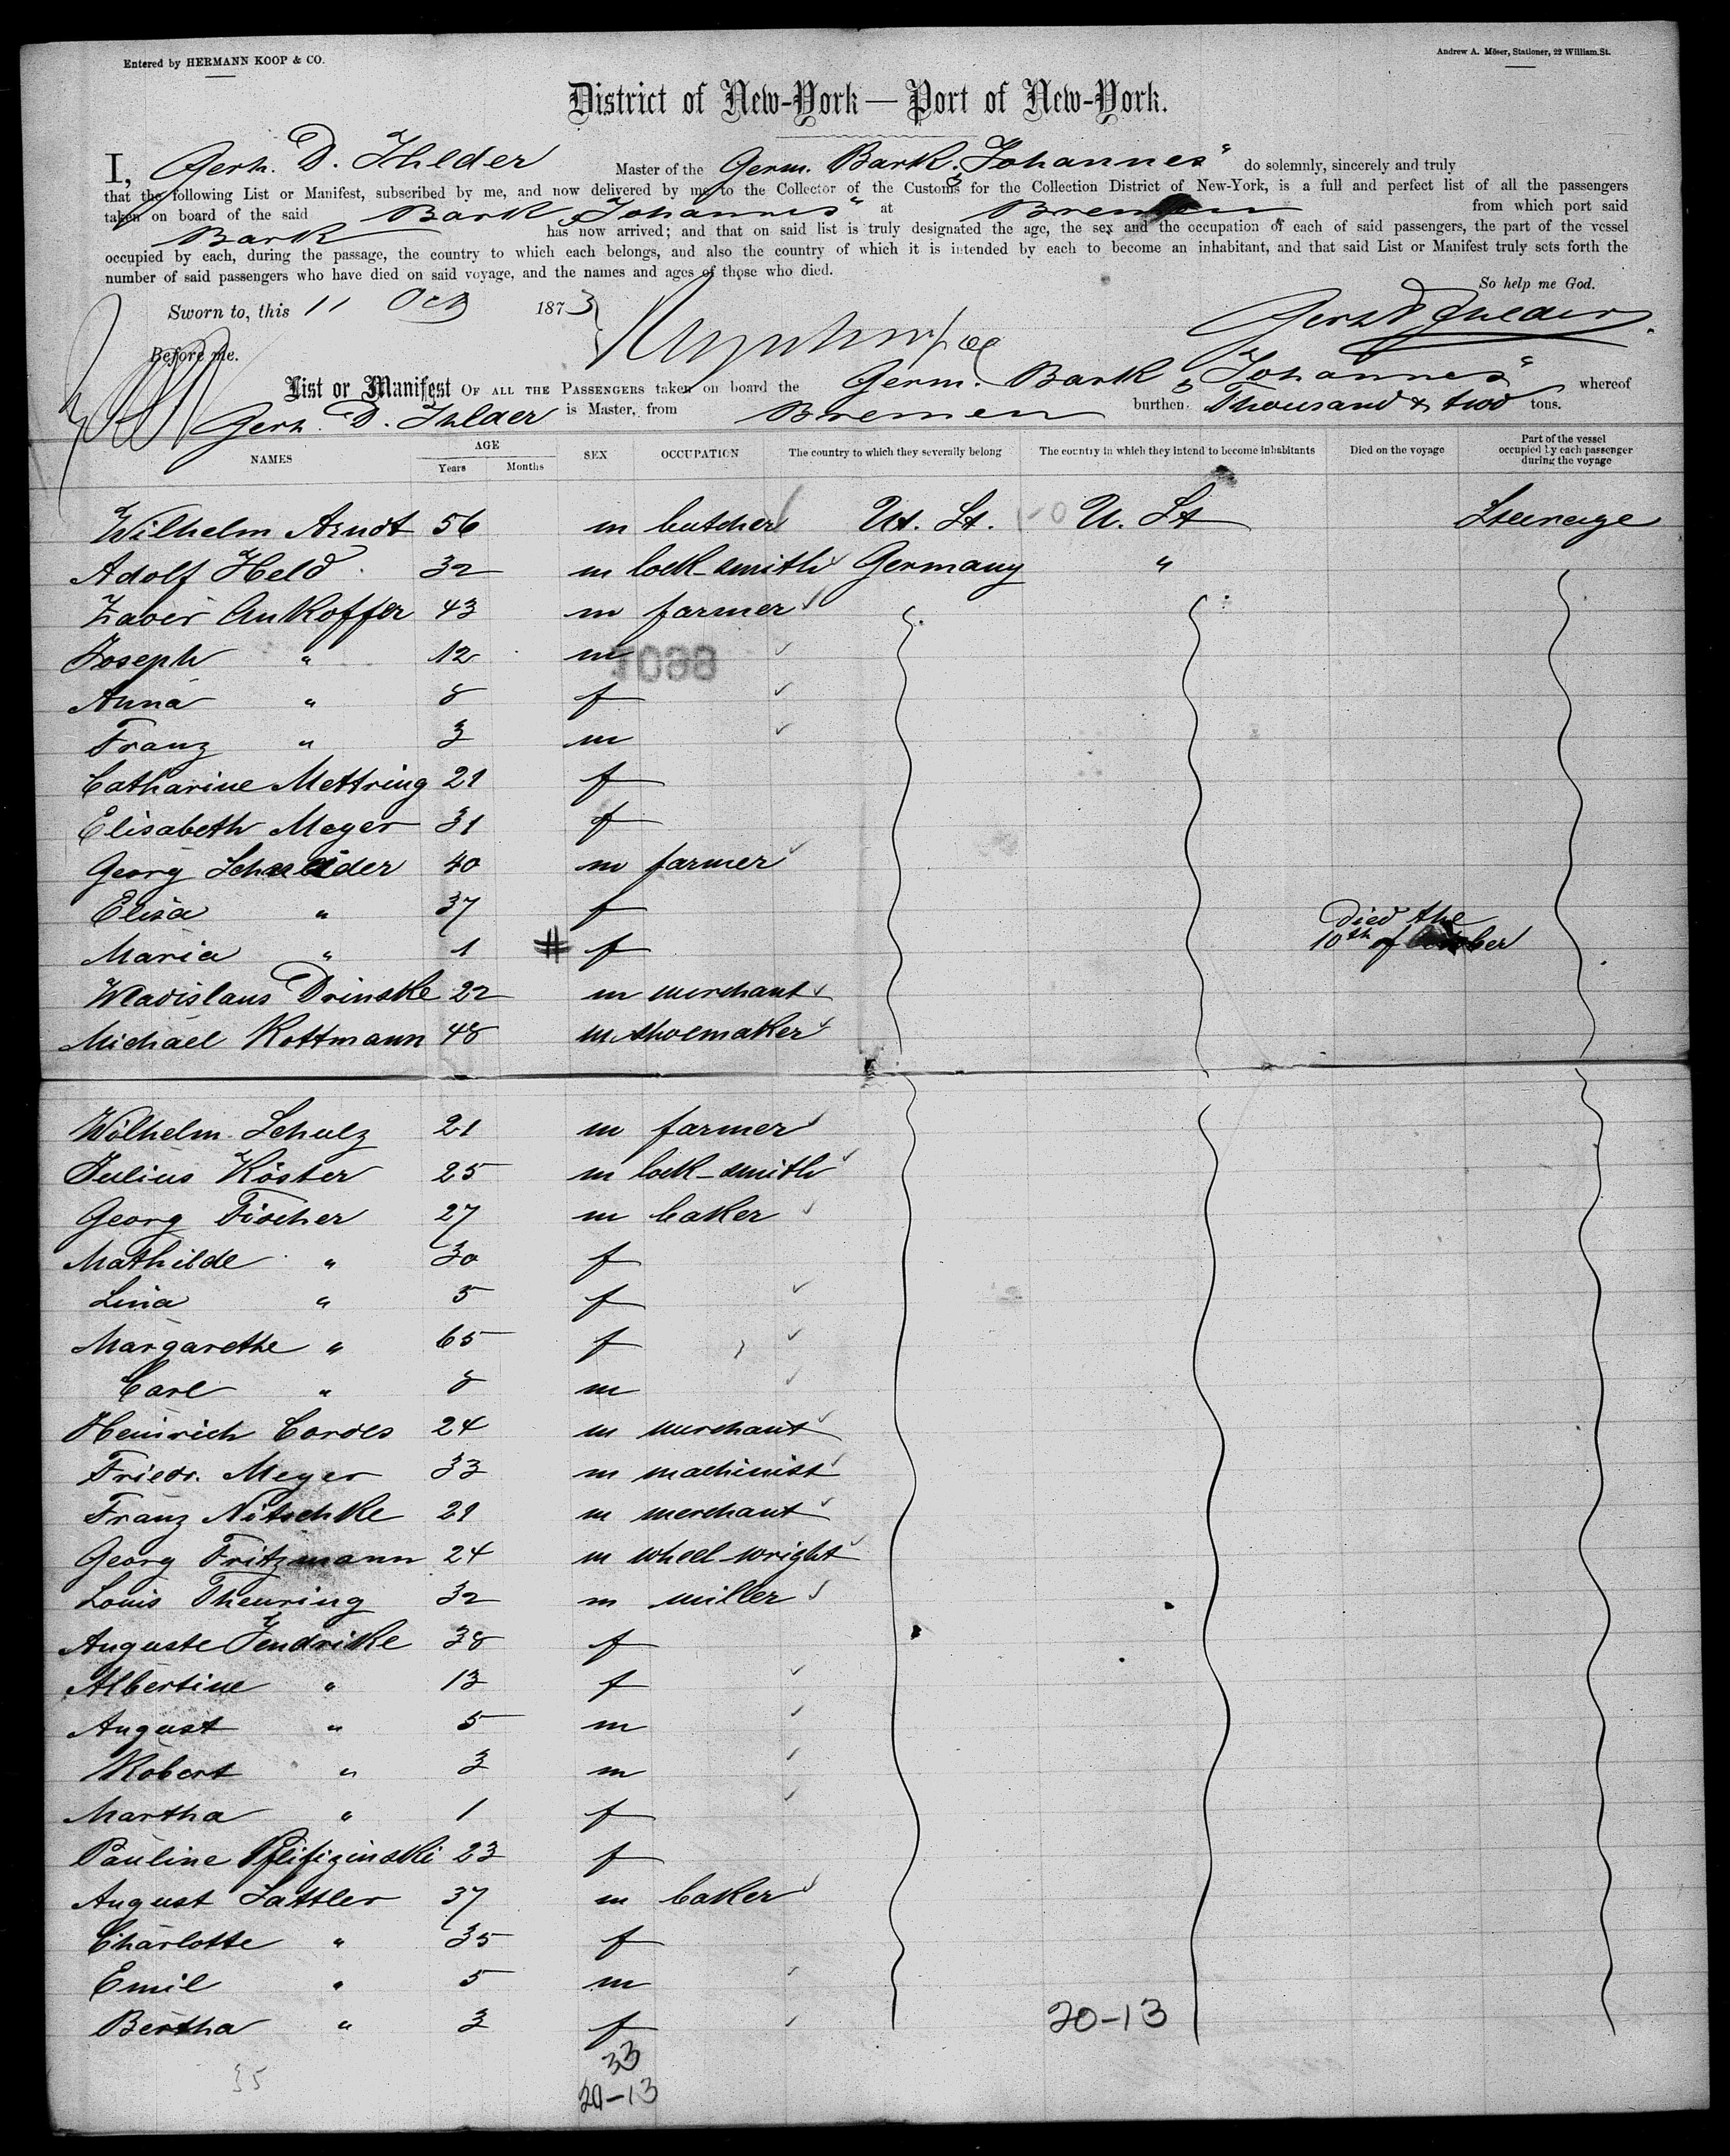 Entered by HERMANN KOOP & CO.
Andrew A. Möser, Stationer, 22 William.St.
District of New-York — Port of New-York.
I, Gerh. D. Ihlder Master of the Germ. Bark „Johannes“ do solemnly, sincerely and truly
that the following List or Manifest, subscribed by me, and now delivered by me to the Collector of the Customs for the Collection District of New-York, is a full and perfect list of all the passengers
taken on board of the said Bark „Johannes“ at Bremen from which port said
Bark has now arrived; and that on said list is truly designated the age, the sex and the occupation of each of said passengers, the part of the vessel
occupied by each, during the passage, the country to which each belongs, and also the country of which it is intended by each to become an inhabitant, and that said List or Manifest truly sets forth the
number of said passengers who have died on said voyage, and the names and ages of those who died.
So help me God.
Sworn to, this 11 Oct 1873
Gerh D Ihlder
Before me.
List or Manifest OF ALL THE PASSENGERS taken on board the Germ. Bark „Johannes“ whereof
Gerh. D. Ihlder is Master, from Bremen burthen Thousand & two tons.
NAMES AGE Years Months SEX OCCUPATION The country to which they severally belong The country in which they intend to become inhabitants Died on the voyage Part of the vessel occupied by each passenger during the voyage
Wilhelm Arndt 56 m butcher Ut. St. U. St Steerage
Adolf Held 32 m lock-smith Germany "
Xaver Ankoffer 43 m farmer
Joseph " 12 m
Anna " 8 f
Franz " 3 m
Catharine Mettring 21 f
Elisabeth Meyer 31 f
Georg Schneider 40 m farmer
Elisa " 37 f
Maria " 1 # f died the 10th of October
Wladislaus Drinske 22 m merchant
Michael Rottmann 48 m shoemaker
Wilhelm Schulz 21 m farmer
Julius Köster 25 m lock-smith
Georg Fischer 27 m baker
Mathilde " 30 f
Lina " 5 f
Margarethe " 65 f
Carl " 8 m
Heinrich Cordes 24 m merchant
Friedr. Meyer 33 m machinist
Franz Nitschke 21 m merchant
Georg Fritzmann 24 m wheel-wright
Louis Theuring 32 m miller
Auguste Jendricke 38 f
Albertine " 13 f
August " 5 m
Robert " 3 m
Martha " 1 f
Pauline 23 f
August Sattler 37 m baker
Charlotte " 35 f
Emil " 5 m
Bertha " 3 f
20-13
33
35
20-13